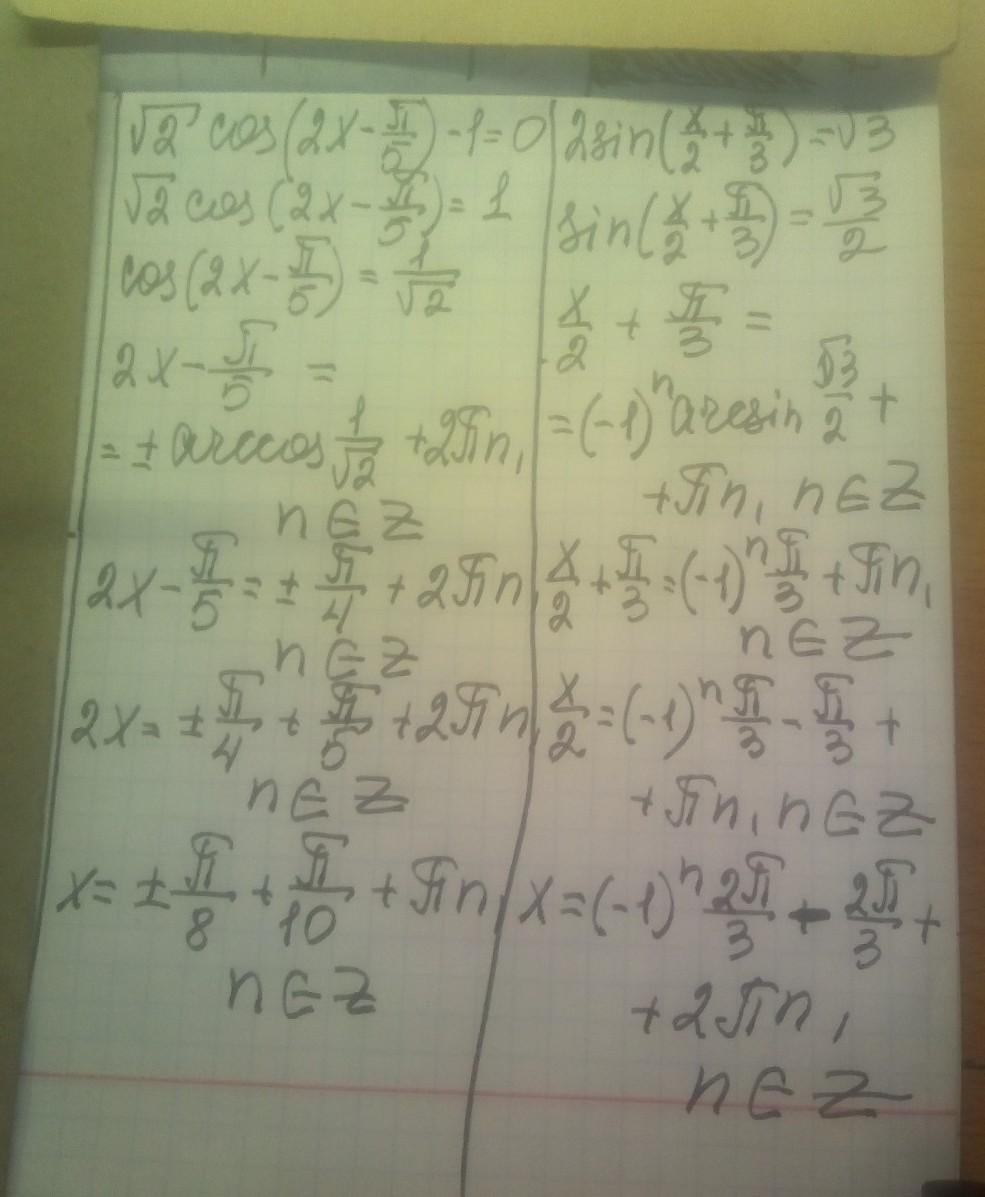 √2 cos(2x - π/5) - 1 = 0
√2 cos(2x - π/5) = 1
cos(2x - π/5) = 1/√2
2x - π/5 =
= ± arccos 1/√2 + 2πn,
n ∈ Z
2x - π/5 = ± π/4 + 2πn,
n ∈ Z
2x = ± π/4 + π/5 + 2πn,
n ∈ Z
x = ± π/8 + π/10 + πn,
n ∈ Z
2sin(x/2 + π/3) = √3
sin(x/2 + π/3) = √3/2
x/2 + π/3 =
= (-1)ⁿ arcsin √3/2 +
+ πn, n ∈ Z
x/2 + π/3 = (-1)ⁿ π/3 + πn,
n ∈ Z
x/2 = (-1)ⁿ π/3 - π/3 +
+ πn, n ∈ Z
x = (-1)ⁿ 2π/3 - 2π/3 +
+ 2πn,
n ∈ Z